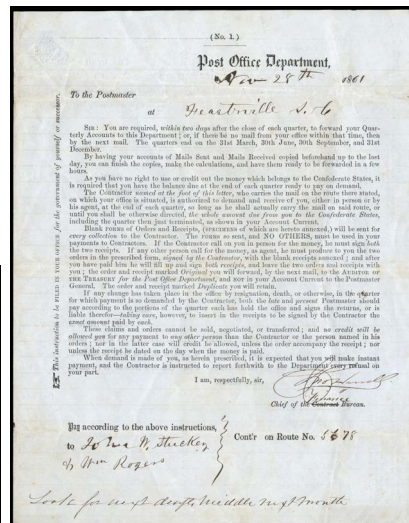 (No. 1.)
Post Office Department,
Nov 28th 1861
To the Postmaster
at Feastville S. C
SIR: You are required, within two days after the close of each quarter, to forward your Quar-
terly Accounts to this Department; or, if there be no mail from your office within that time, then
by the next mail. The quarters end on the 31st March, 30th June, 30th September, and 31st
December.
By having your accounts of Mails Sent and Mails Received copied beforehand up to the last
day, you can finish the copies, make the calculations, and have them ready to be forwarded in a few
hours.
As you have no right to use or contract out the money which belongs to the Confederate States, it
is required that you have the balance due at the end of each quarter ready to pay on demand.
The Contractor named at the foot of this letter, who carries the mail on the route there stated,
on which your office is situated, is authorized to demand and receive of you, either in person or by
his agent, at the end of each quarter, so long as he shall actually carry the mail on said route, or
until you shall be otherwise directed, the whole amount due from you to the Confederate States,
including the quarter then just terminated, as shown in your Account Current.
Blank forms of Orders and Receipts, (specimens of which are hereto annexed,) will be sent for
every collection to the Contractor. The forms so sent, and NO OTHERS, must be used in your
payments to Contractors. If the Contractor call on you in person for the money, he must sign both
the two receipts. If any other person call for the money, as agent, he must produce to you the two
orders in the prescribed form, signed by the Contractor, with the blank receipts annexed; and after
you have paid him he will fill up and sign both receipts, and leave the two orders and receipts with
you; the order and receipt marked Original you will forward, by the next mail, to the AUDITOR OF
THE TREASURY for the Post Office Department, and not in your Account Current to the Postmaster
General. The order and receipt marked Duplicate you will retain.
If any change has taken place in the office by resignation, death, or otherwise, in the quarter
for which payment is so demanded by the Contractor, both the late and present Postmaster should
pay according to the portions of the quarter each has held the office and signs the returns, or is
liable therefor—taking care, however, to insert in the receipts to be signed by the Contractor the
exact amount paid by each.
These claims and orders cannot be sold, negotiated, or transferred; and no credit will be
allowed you for any payment to any other person than the Contractor or the person named in his
orders; nor in the latter case will credit be allowed, unless the order accompany the receipt; nor
unless the receipt be dated on the day when the money is paid.
When demand is made of you, as herein prescribed, it is expected that you will make instant
payment, and the Contractor is instructed to report forthwith to the Department every refusal on
your part.
I am, respectfully, sir,
Finance
Chief of the Contract Bureau.
Pay according to the above instructions,
to John W. Stuckey
& Wm Rogers
Cont'r on Route No. 5678
Look for next draft, middle next month
This instruction to be FILED IN YOUR OFFICE for the government of yourself or successor.